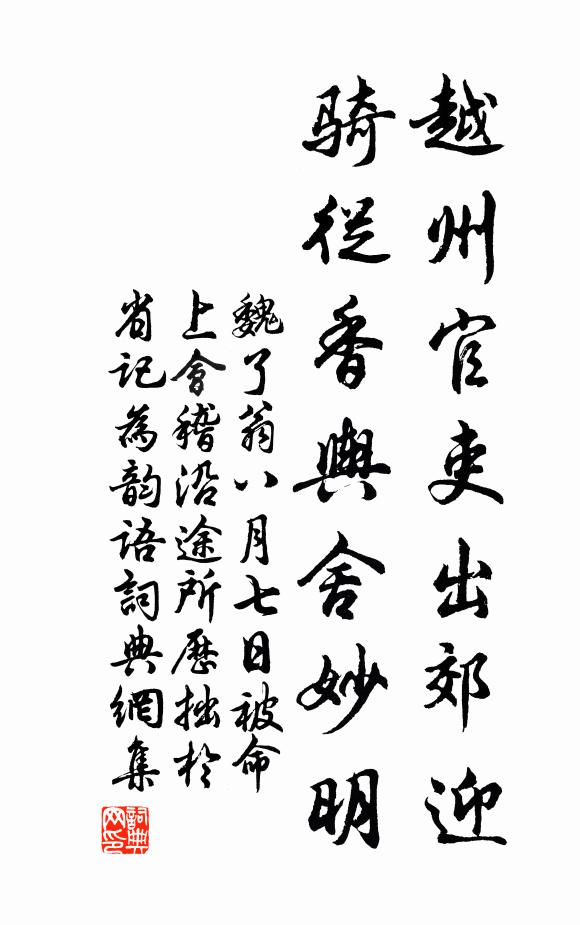 越州官吏出郊迎
騎從香輿舍妙明
魏了翁八月七日被命
上會稽沿途所歷拙於
省記為韵語詞典網集
詞典
网印